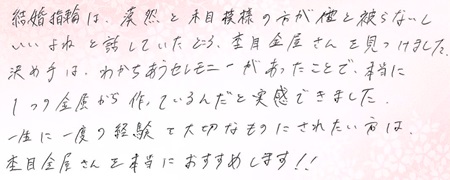 結婚指輪は、漠然と木目模様の方が他と被らないし
いいよねと話していたところ、杢目金屋さんを見つけました。
決め手は、わかちあうセレモニーがあったことで、本当に
1つの金属から作っているんだと実感できました。
一生に一度の経験で大切なものにされたい方は、
杢目金屋さんを本当におすすめします!!